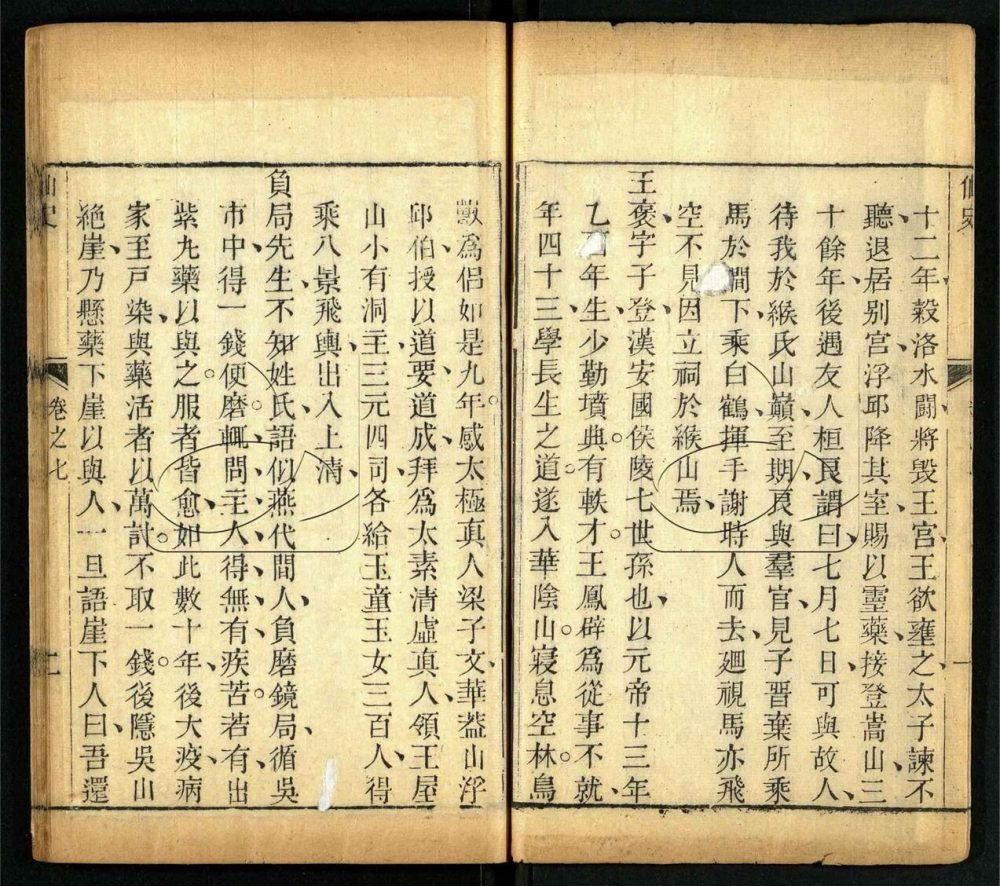 十二年穀洛水鬬將毀王宮王欲壅之太子諫不
聽退居别宮浮邱降其室賜以靈藥接登嵩山三
十餘年後遇友人桓良謂曰七月七日可與故人
待我於緱氏山巔至期良與羣官見子晋棄所乘
馬於澗下乘白鶴揮手謝時人而去廻視馬亦飛
空不見因立祠於緱山焉
王褒字子登漢安國侯陵七世孫也以元帝十三年
乙酉年生少勤墳典有軼才王鳳辟爲從事不就
年四十三學長生之道遂入華陰山寢息空林鳥
獸爲侣如是九年感太極真人梁子文華葢山浮
邱伯授以道要道成拜爲太素清虚真人領王屋
山小有洞主三元四司各給玉童玉女三百人得
乘八景飛輿出入上清
負局先生不知姓氏語似燕代間人負磨鏡局循吳
市中得一錢便磨輒問主人得無有疾苦若有出
紫丸藥以與之服者皆愈如此數十年後大疫病
家至戸染與藥活者以萬討不取一錢後隱吳山
絶崖乃懸藥下崖以與人一旦語崖下人曰吾還
仙史
卷之七
二